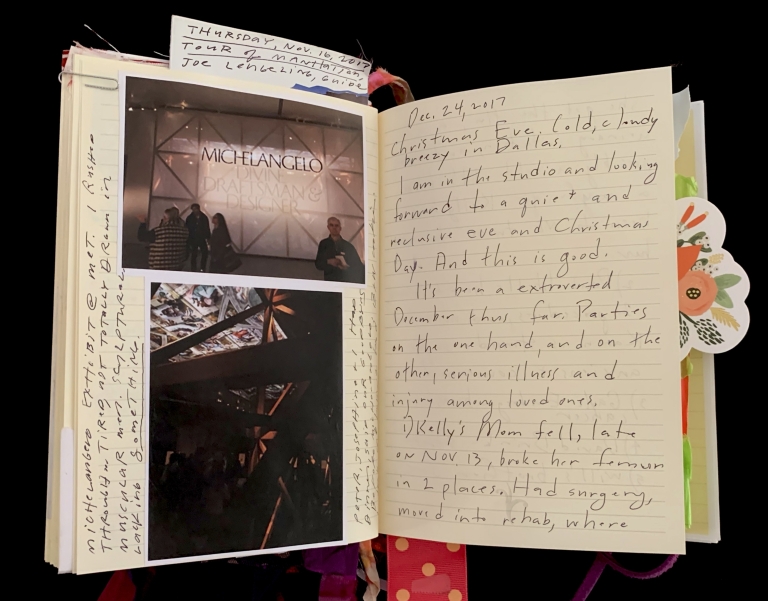 THURSDAY, NOV. 16, 2017
TOUR OF MANHATTAN,
JOE LENGELING, GUIDE
MICHELANGELO
DIVINE
DRAFTSMAN &
DESIGNER
MICHELANGELO EXHIBIT @ MET. I RUSHED
THROUGH - TIRED, NOT TOTALLY DRAWN IN
MUSCULAR MEN. SCULPTURAL
LACKING SOMETHING.
PETER, JOSEPHINE + I
Dec. 24, 2017
Christmas Eve. Cold, cloudy
breezy in Dallas.
I am in the studio and looking
forward to a quiet and
reclusive eve and Christmas
Day. And this is good.
It's been a extroverted
December thus far. Parties
on the one hand, and on the
other, serious illness and
injury among loved ones.
1) Kelly's Mom fell, late
on NOV. 13, broke her femur
in 2 places. Had surgery,
moved into rehab, where